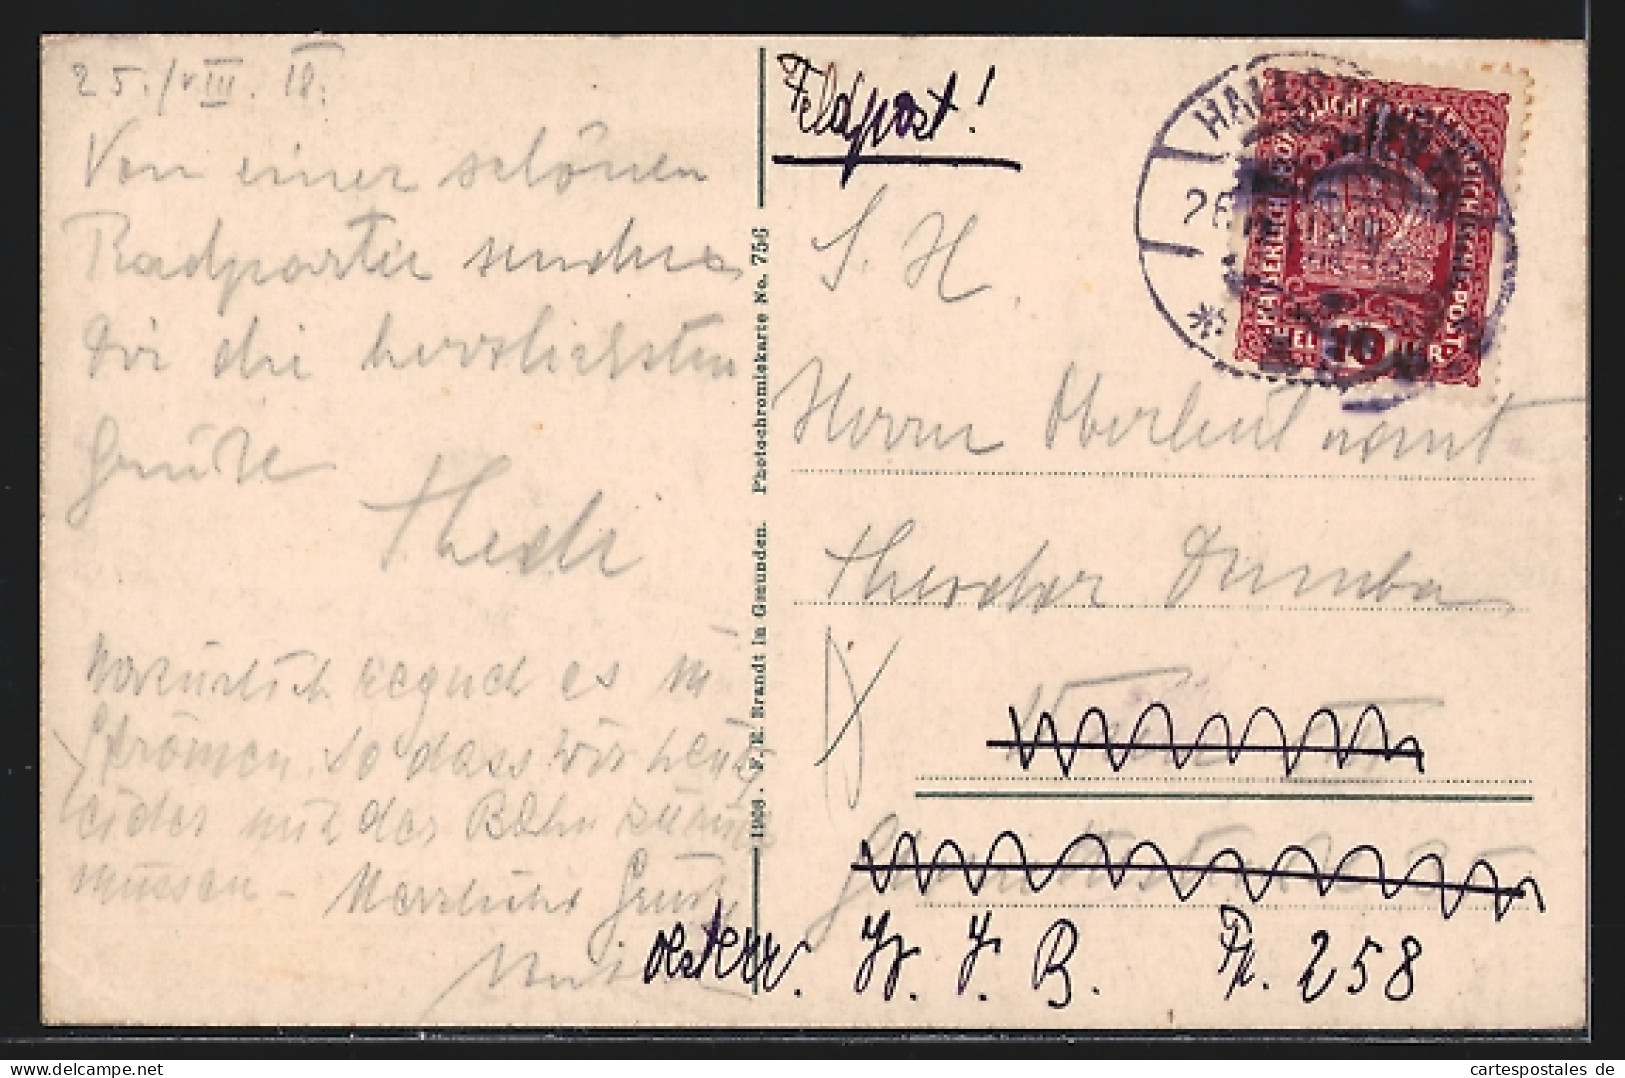 25./VIII. 18.
Von einer schönen
Radpartie senden
Dir die herzlichsten
Grüße
Thedi
Natürlich regnet es in
Strömen, so dass wir heute
leider mit der Bahn zurück
müssen - Herzliche Grüße
1908. F. E. Brandt in Gmunden. Photochromiekarte No. 756
Feldpost!
S. H.
Herrn Oberleutnant
Theodor Dumba
Wien
österr. F. 258
HALLST
26
KAISERLICHE KÖNIGLICHE ÖSTERREICHISCHE POST
HELLER 10 HELLER
cartespostales de
www.delcampe.net